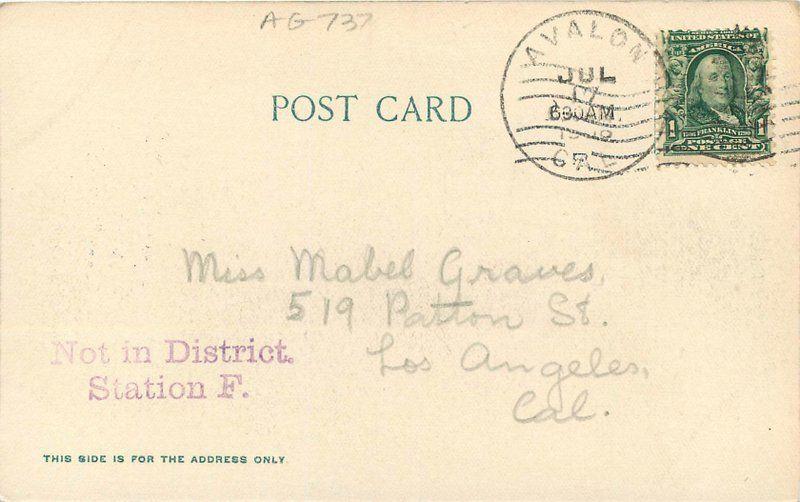 AG-737
AVALON
JUL
17
630AM
CAL
SERIES 1902
UNITED STATES OF
AMERICA
1 FRANKLIN 1
POSTAGE
ONE CENT
POST CARD
Miss Mabel Graves,
519 Patton St.
Los Angeles,
Cal.
Not in District.
Station F.
THIS SIDE IS FOR THE ADDRESS ONLY